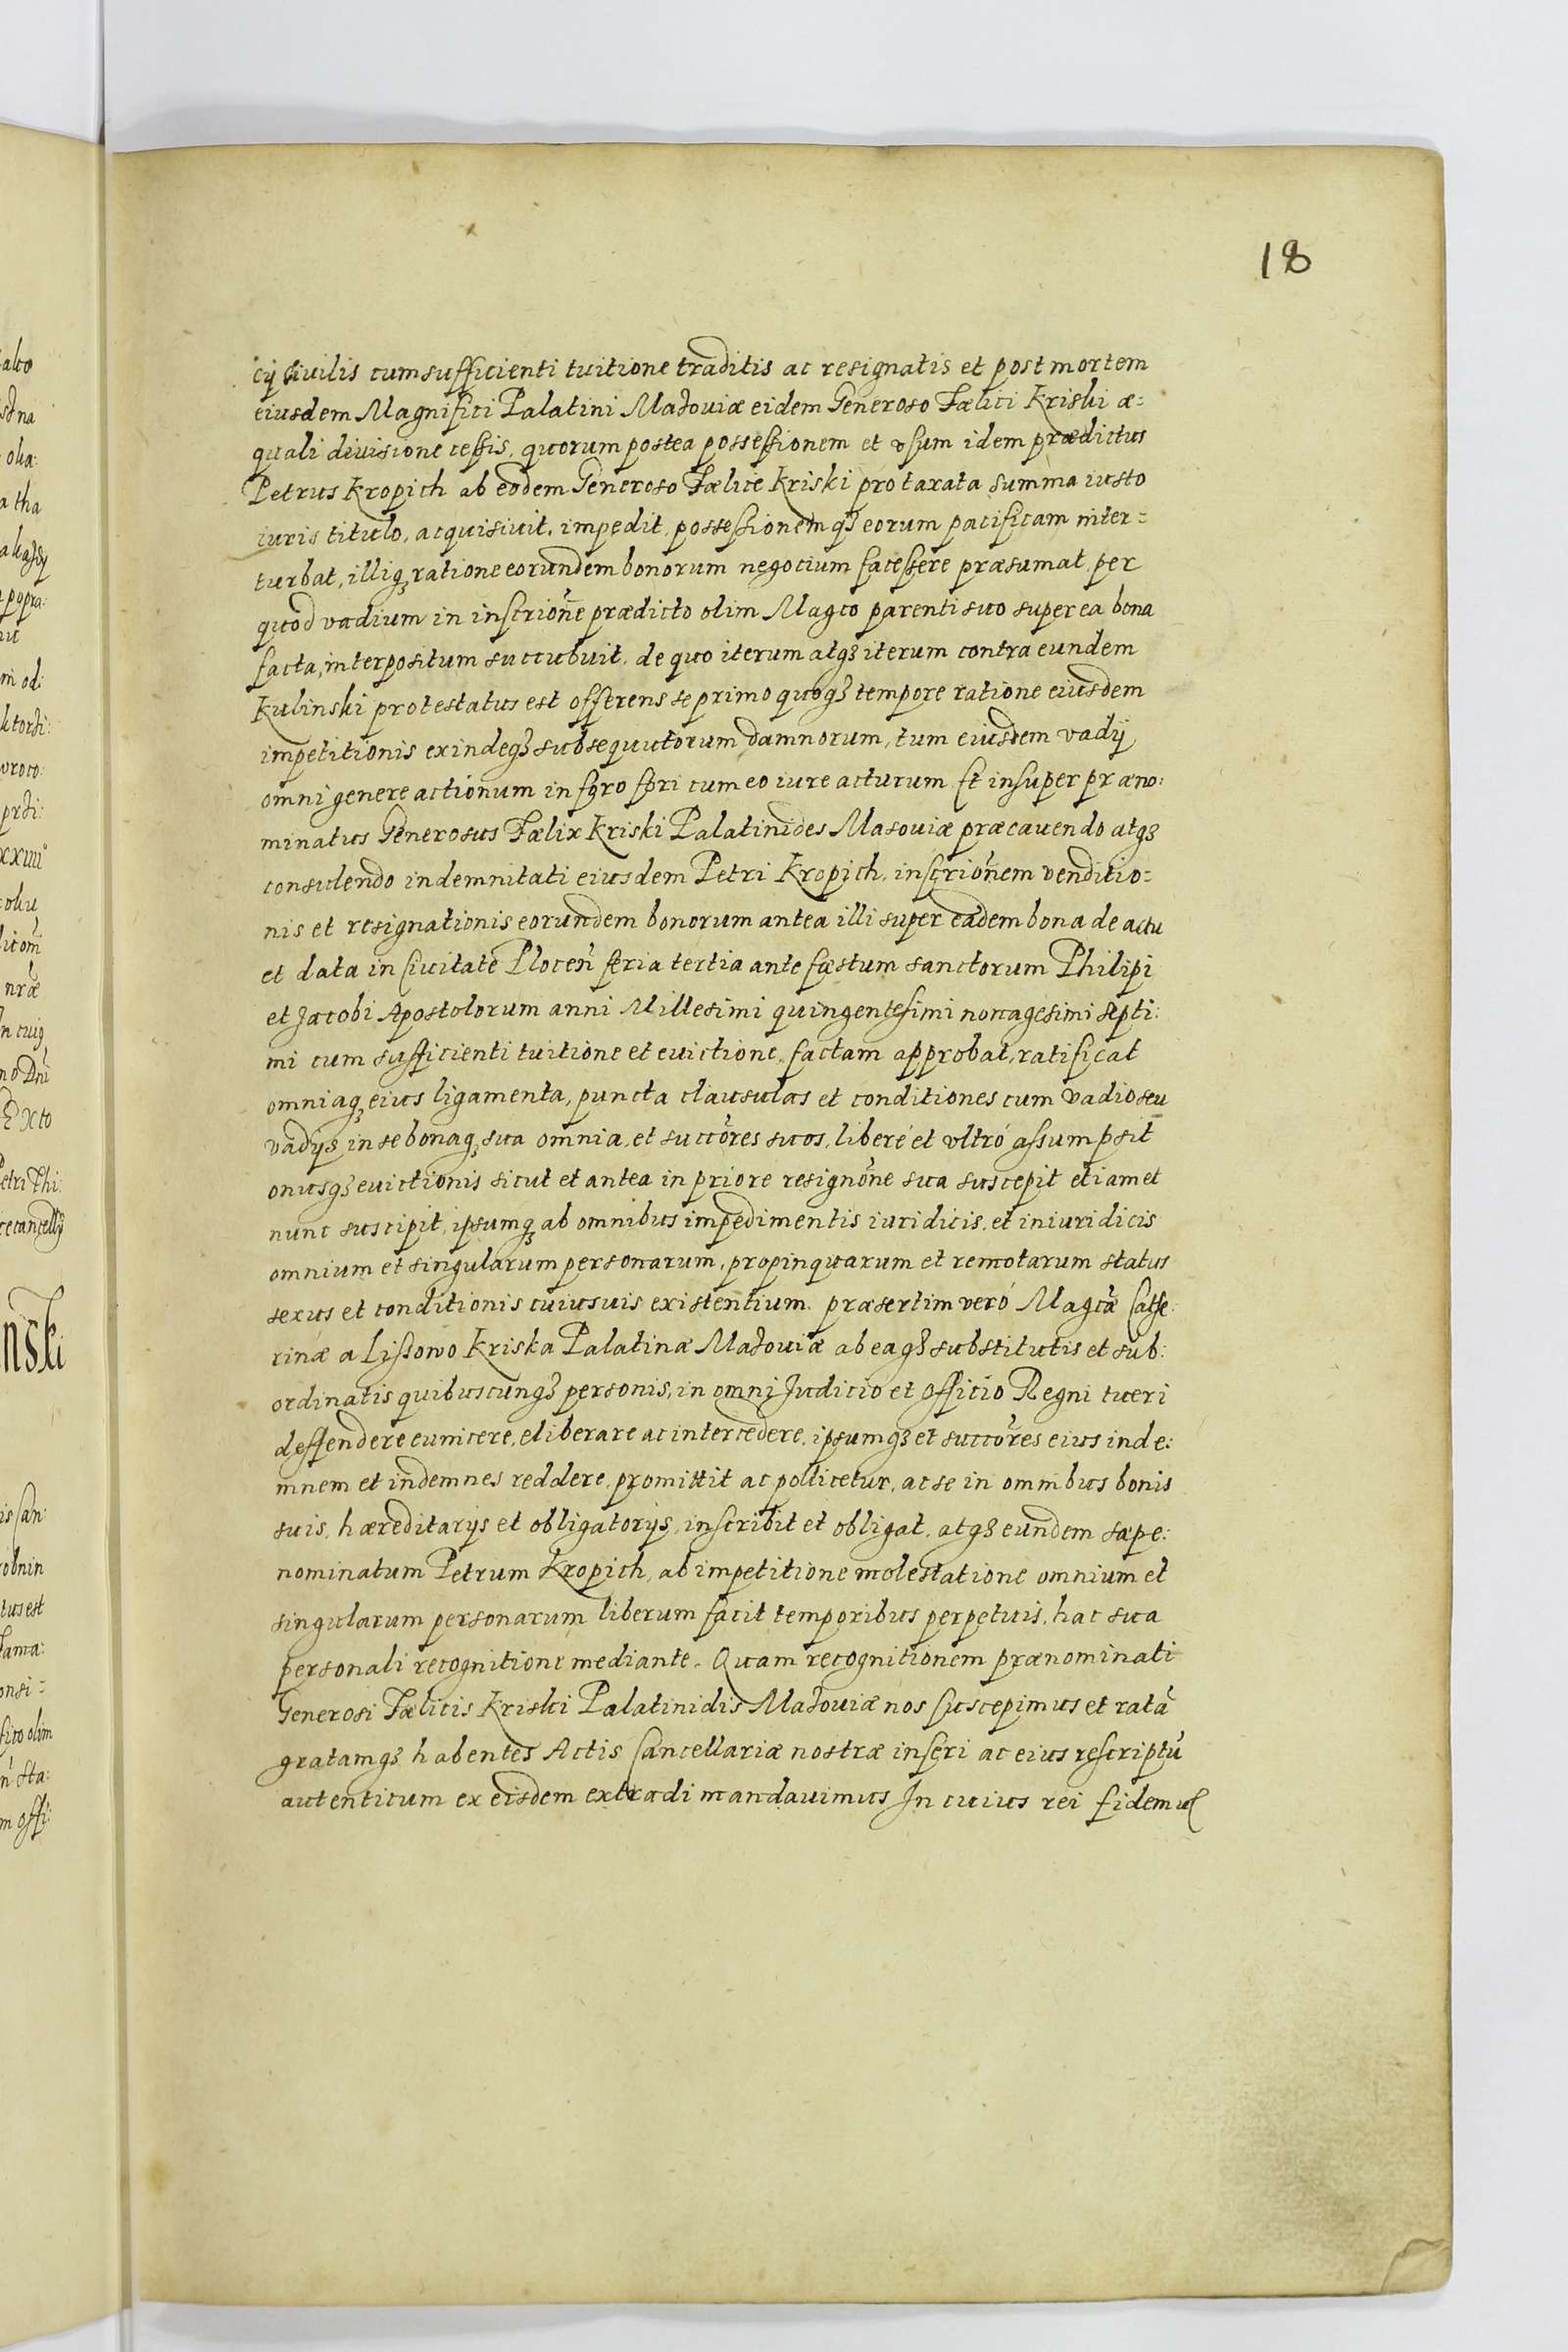 18
cij ciuilis cum sufficienti tuitione traditis ac resignatis et post mortem
eiusdem Magnifici Palatini Mazouiæ eidem Generoso Fælici Kriski æ=
quali diuisione cessis, quorum postea possessionem et vsum idem prædictus
Petrus Kropich ab eodem Generoso Fælice Kriski pro taxata summa iusto
iuris titulo, acquisiuit, impedit, possessionemqꝫ eorum pacificam inter=
turbat, illiqꝫ ratione eorundem bonorum negocium facessere præsumat, per
quod vadium in inscrioñe prædicto olim Magco parenti suo super ea bona
facta, interpositum succubuit, de quo iterum atqꝫ iterum contra eundem
Kulinski protestatus est offerens se primo quoqꝫ tempore ratione eiusdem
impetitionis exindeqꝫ subsequutorum damnorum, tum eiusdem vadij
omni genere actionum in foro fori cum eo iure acturum Et insuper præno:
minatus Generosus Fælix Kriski Palatinides Masouiæ præcauendo atqꝫ
consulendo indemnitati eiusdem Petri Kropich, inscrioñem venditio=
nis et resignationis eorundem bonorum antea illi super eadem bona de actu
et data in Ciuitate Plocen̄ feria tertia ante fæstum sanctorum Philipi
et Jacobi Apostolorum anni Millesimi quingentesimi nonagesimi septi:
mi cum sufficienti tuitione et euictione, factam approbat, ratificat
omniaqꝫ eius ligamenta, puncta clausulas et conditiones cum vadio seu
vadijs in se bonaqꝫ sua omnia, et succōres suos, liberé et vltró assumpsit
onusqꝫ euictionis sicut et antea in priore resignōne sua suscepit etiam et
nunc suscipit, ipsumqꝫ ab omnibus impedimentis iuridicis, et iniuridicis
omnium et singularum personarum, propinquarum et remotarum status
sexus et conditionis cuiusuis existentium, præsertim veró Magcæ̃ Cathe
rinæ a Lissowo Kriska Palatinæ Mazouiæ ab eaqꝫ substitutis et sub:
ordinatis quibuscunqꝫ personis, in omni Judicio et Officio Regni tueri
deffendere euincere, eliberare ac intercedere, ipsumqꝫ et succōres eius inde:
mnem et indemnes reddere, promittit ac pollicetur, ac se in omnibus bonis
suis, hæreditarijs et obligatorijs, inscribit et obligat, atqꝫ eundem sæpe:
nominatum Petrum Kropich, ab impetitione molestatione omnium et
singularum personarum liberum facit temporibus perpetuis, hac sua
personali recognitione mediante. Quam recognitionem prænominati
Generosi Fælicis Kriski Palatinidis Mazouiæ nos suscepimus et ratā
gratamqꝫ habentes Actis Cancellariæ nostræ inseri ac eius rescriptū
autenticum ex eisdem extradi mandauimus In cuius rei fidem